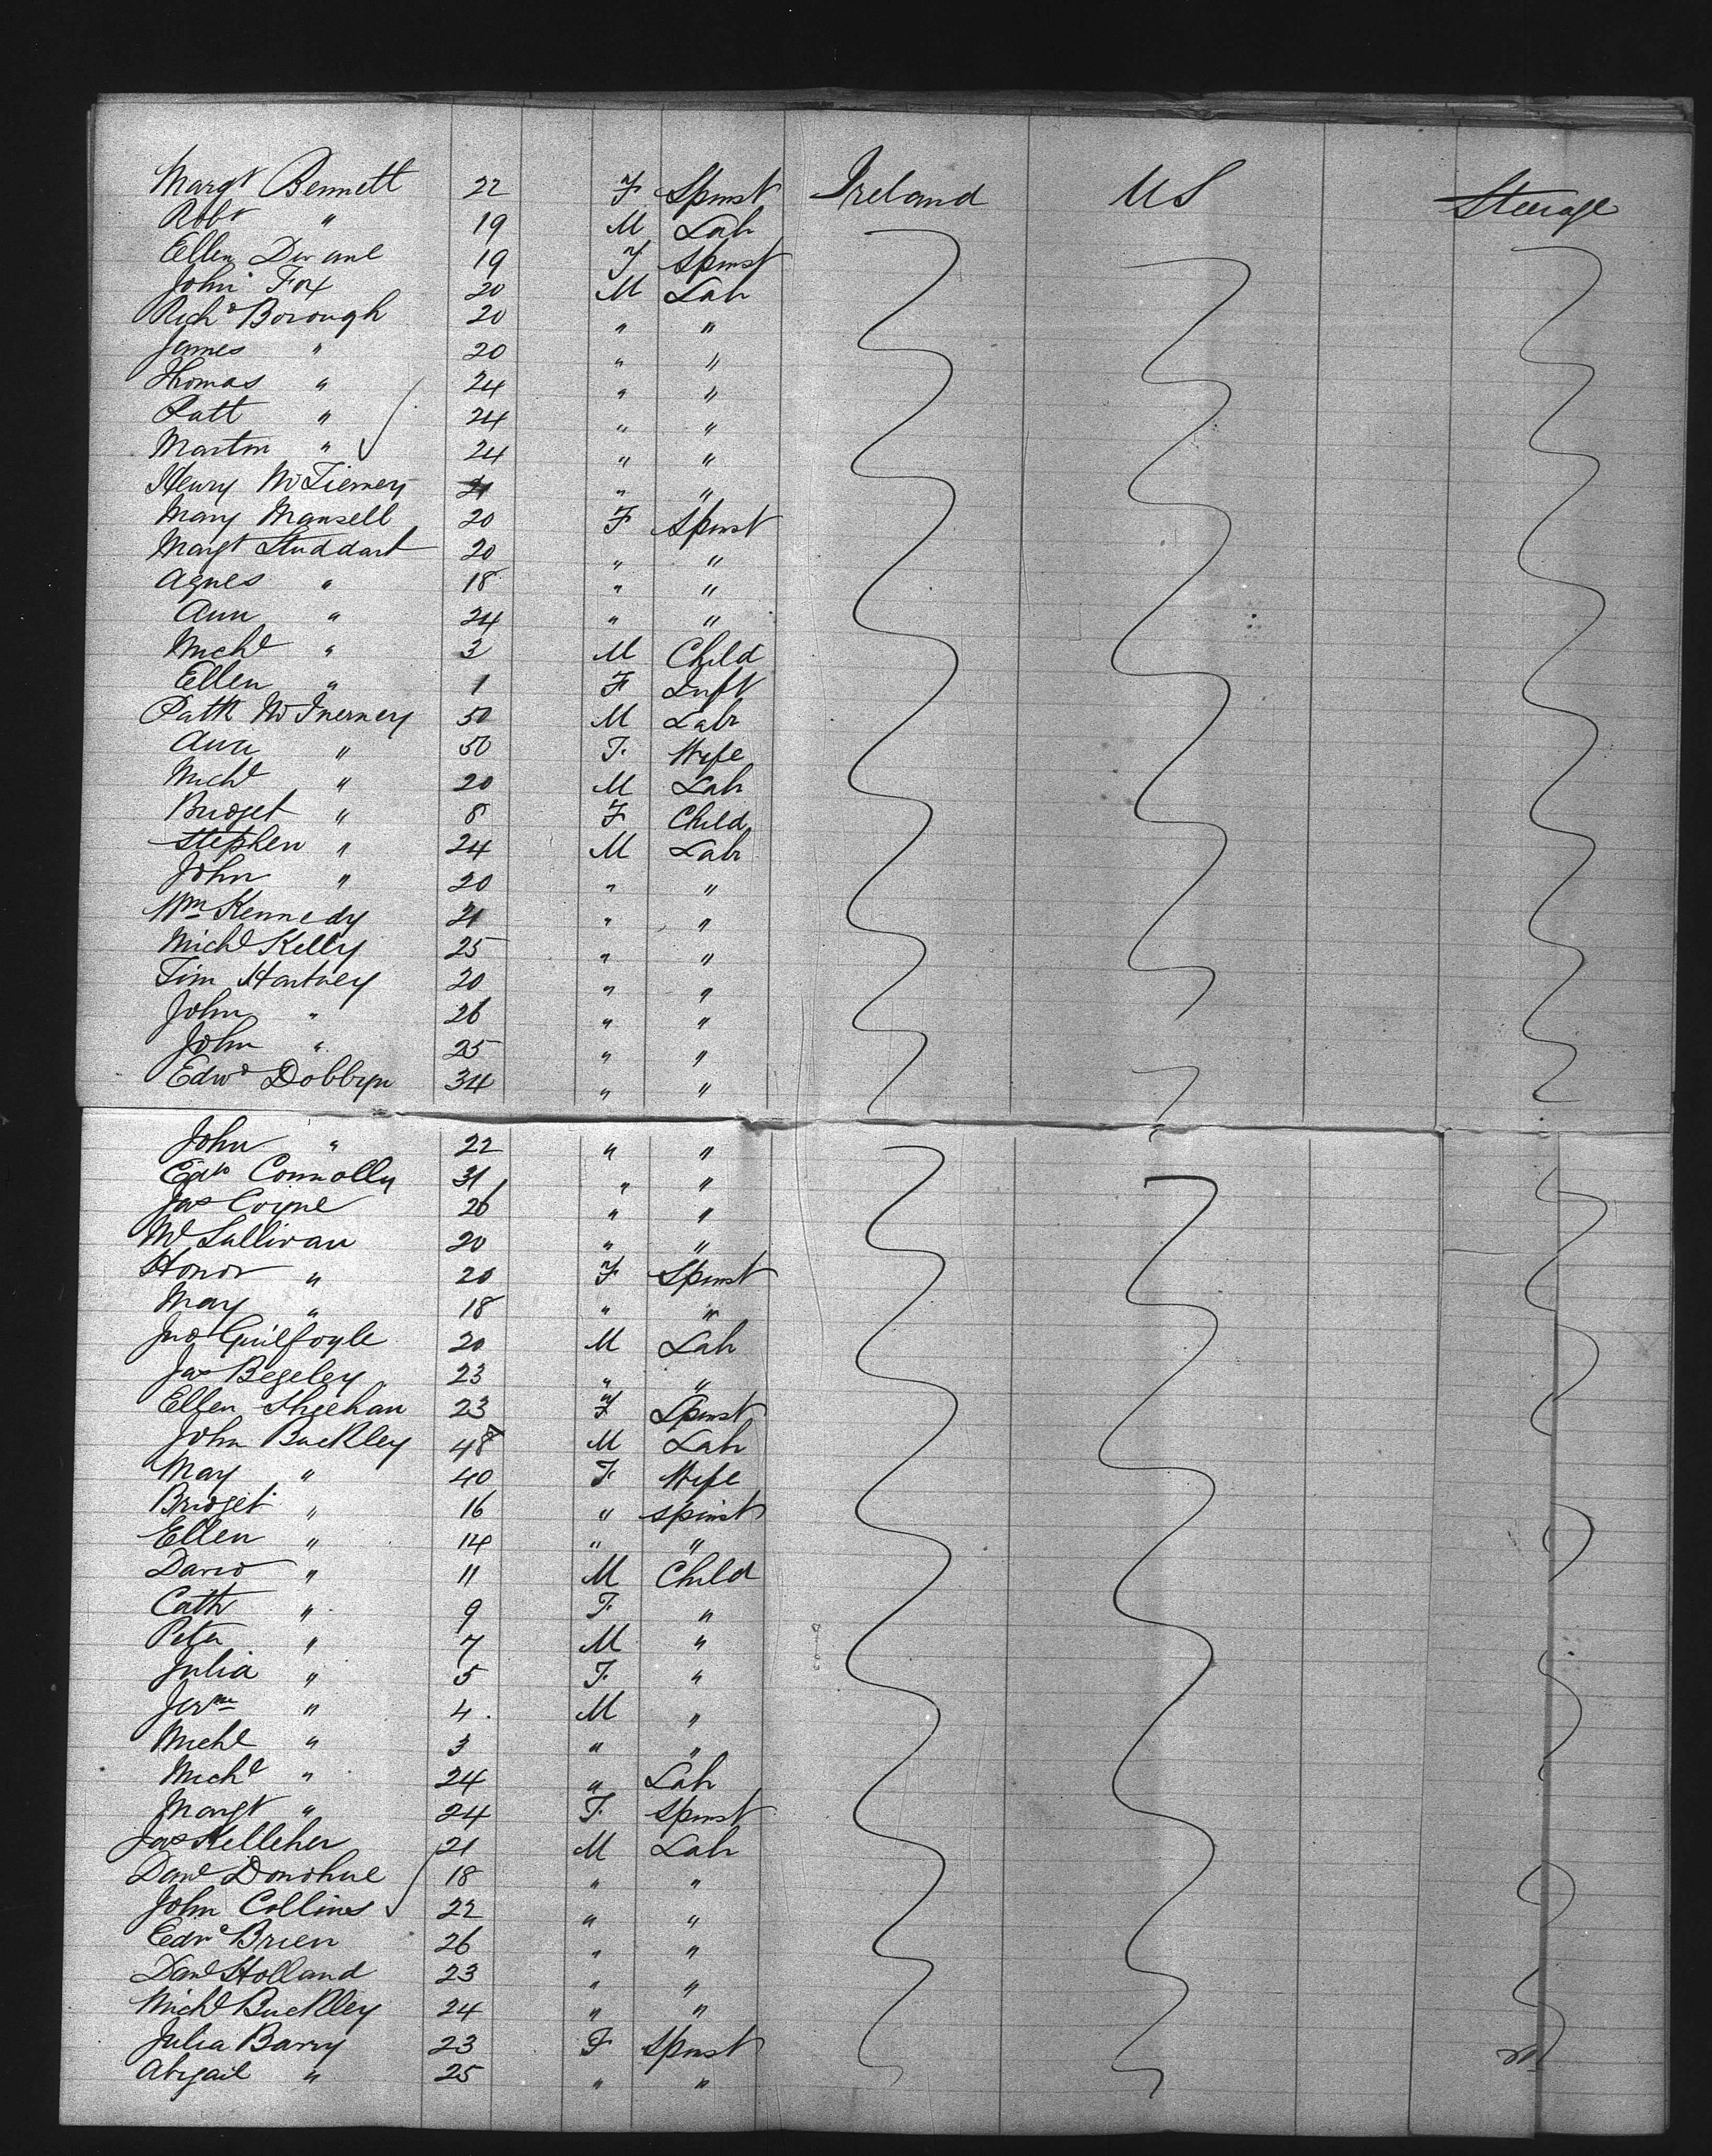 Margt Bennett 22 F Spinst Ireland US Steerage
Robt " 19 M Lab
Ellen Devane 19 F Spinst
John Fox 20 M Lab
Richd Borough 20 " "
James " 20 " "
Thomas " 24 " "
Patt " 24 " "
Martin " 24 " "
Henry McTierney 21 " "
Mary Mansell 20 F Spinst
Margt Studdart 20 " "
Agnes " 18 " "
Ann " 24 " "
Michl " 3 M Child
Ellen " 1 F Inft
Patk McInerney 50 M Labr
Ann " 50 F Wife
Michl " 20 M Lab
Bridget " 8 F Child
Stephen " 24 M Labr
John " 20 " "
Wm Kennedy 21 " "
Michl Kelly 25 " "
Tim Hartney 20 " "
John " 26 " "
John " 25 " "
Edwd Dobbyn 34 " "
John " 22 " "
Edwd Connolly 31 " "
Jas Coyne 26 " "
Ml Sullivan 20 " "
Honor " 20 F Spinst
May " 18 " "
Jno Guilfoyle 20 M Lab
Jas Begeley 23 " "
Ellen Sheehan 23 F Spinst
John Buckley 48 M Lab
May " 40 F Wife
Bridget " 16 " Spinst
Ellen " 14 " "
David " 11 M Child
Cath " 9 F "
Peter " 7 M "
Julia " 5 F "
Jerme " 4 M "
Michl " 3 " "
Michl " 24 " Lab
Margt " 24 F Spinst
Jas Kelleher 21 M Lab
Danl Donohue 18 " "
John Collins 22 " "
Edwd Brien 26 " "
Danl Holland 23 " "
Michl Buckley 24 " "
Julia Barry 23 F Spinst
Abigail " 25 " "